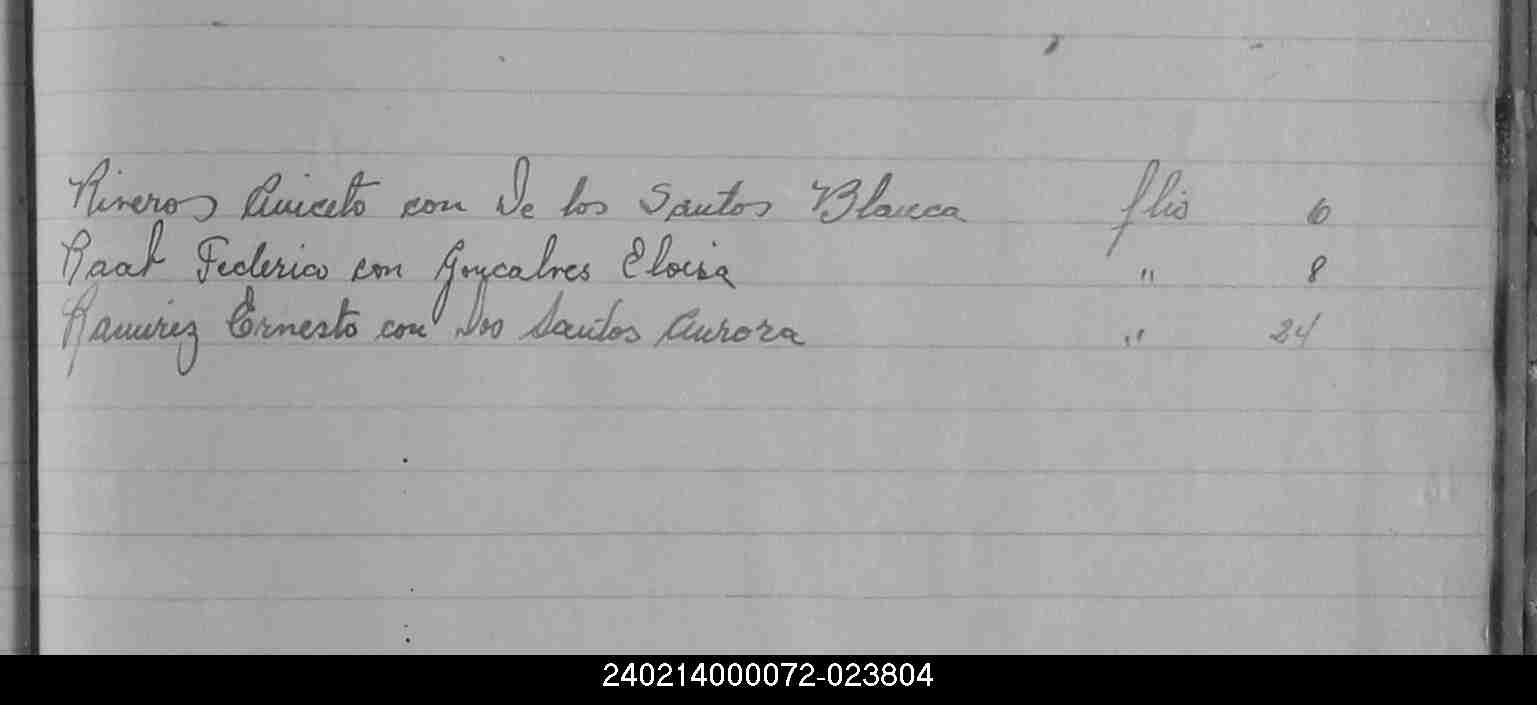 Riveros Aniceto con De los Santos Blanca flio 6
Raat Federico con Gonçalves Eloisa " 8
Ramirez Ernesto con Dos Santos Aurora " 24
240214000072-023804